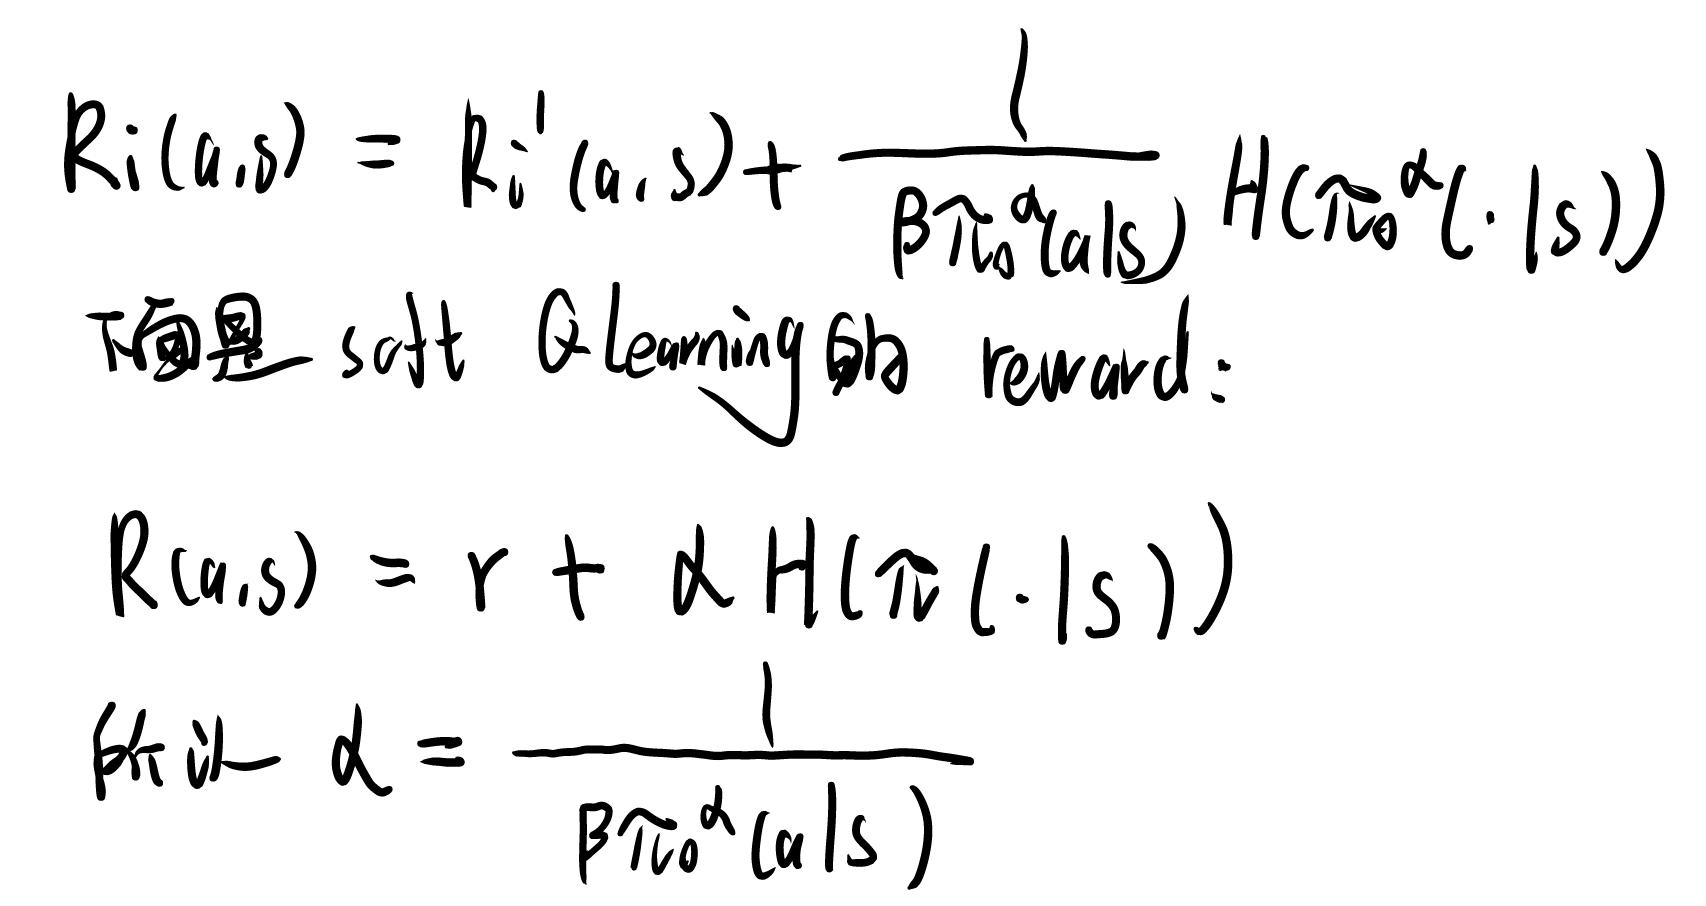 Ri(a,s) = Ri'(a,s) + 1/(βπ₀^α(a|s)) H(π₀^α(·|s))
下面是 soft Q Learning 的 reward:
R(a,s) = r + α H(π(·|s))
所以 α = 1/(βπ₀^α(a|s))